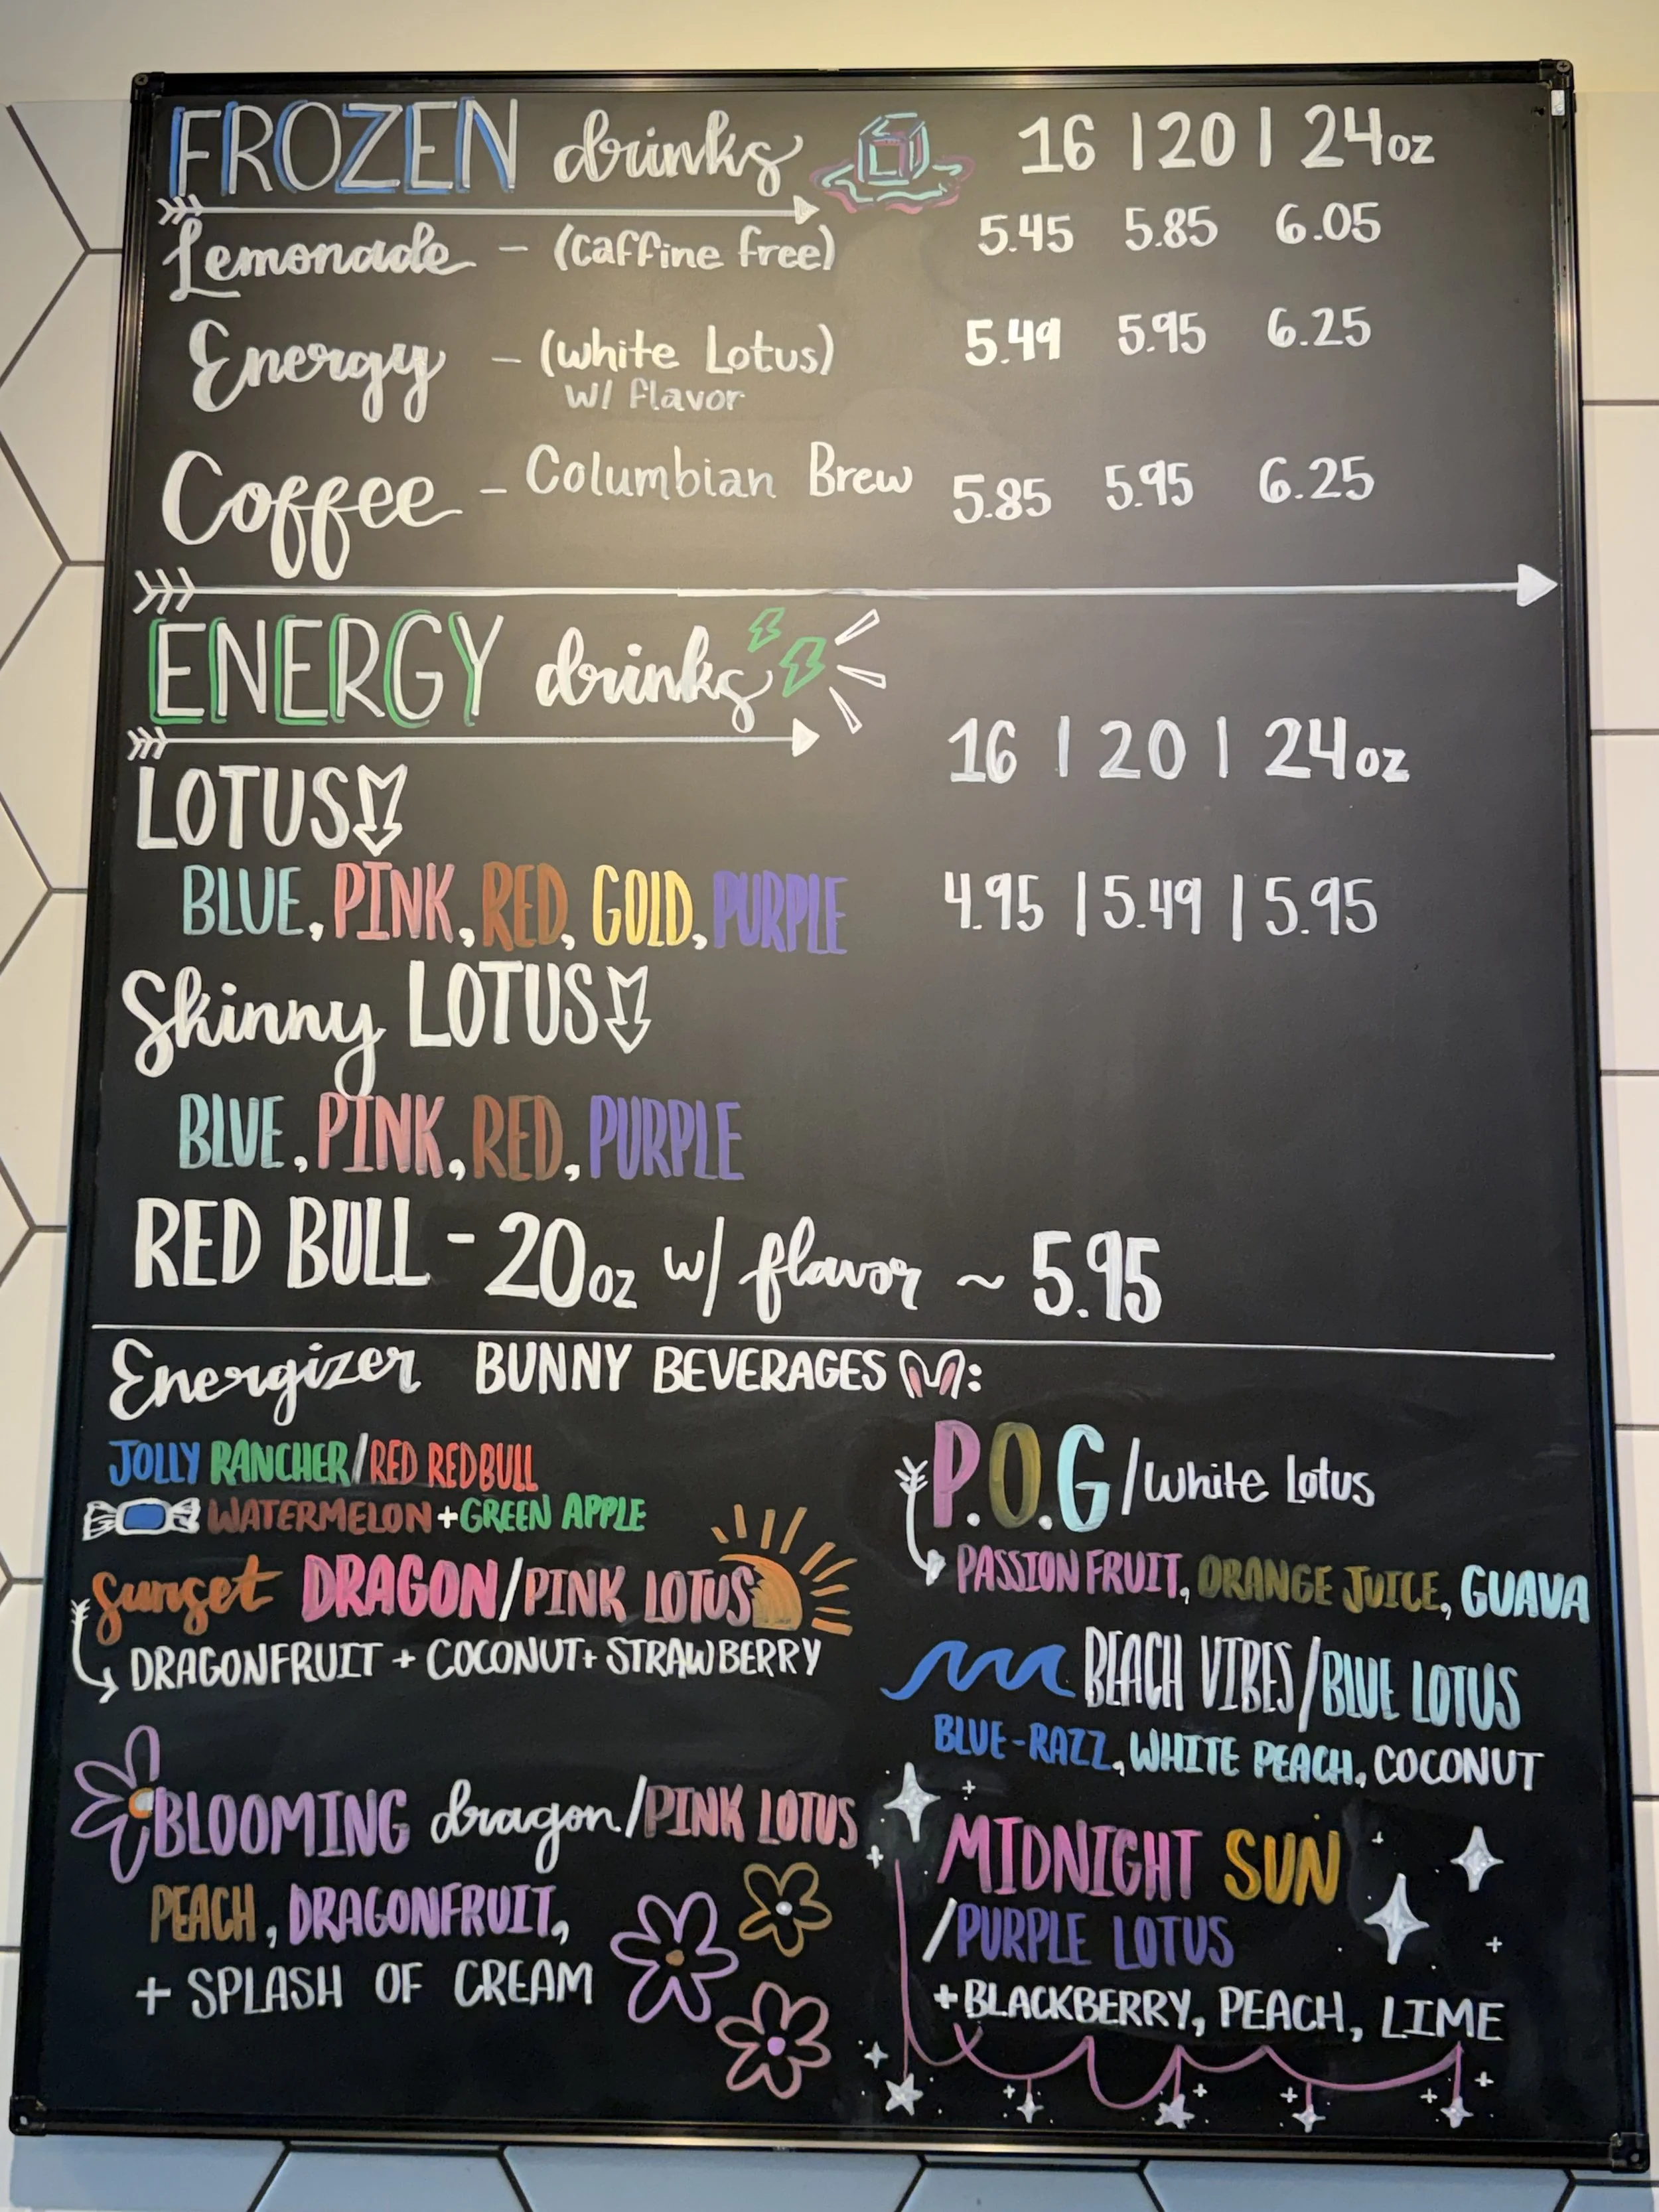 FROZEN drinks 16 | 20 | 24oz
Lemonade - (caffine free) 5.45 5.85 6.05
Energy - (white Lotus) 5.49 5.95 6.25
w/ flavor
Coffee - Columbian Brew 5.85 5.95 6.25
ENERGY drinks
16 | 20 | 24oz
LOTUS
BLUE, PINK, RED, GOLD, PURPLE 4.95 | 5.49 | 5.95
Skinny LOTUS
BLUE, PINK, RED, PURPLE
RED BULL - 20oz w/ flavor ~ 5.95
Energizer BUNNY BEVERAGES:
JOLLY RANCHER/RED REDBULL
WATERMELON + GREEN APPLE
Sunset DRAGON/PINK LOTUS
DRAGONFRUIT + COCONUT + STRAWBERRY
BLOOMING dragon/PINK LOTUS
PEACH, DRAGONFRUIT,
+ SPLASH OF CREAM
P.O.G/White Lotus
PASSION FRUIT, ORANGE JUICE, GUAVA
BEACH VIBES/BLUE LOTUS
BLUE-RAZZ, WHITE PEACH, COCONUT
MIDNIGHT SUN
/PURPLE LOTUS
+BLACKBERRY, PEACH, LIME